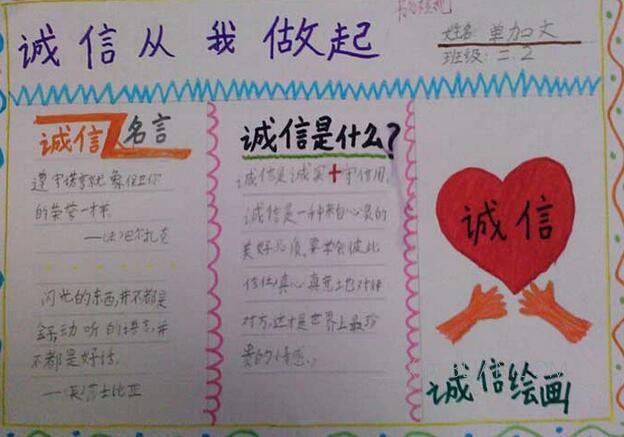 诚信从我做起
姓名: 单加文
班级: 二.2
诚信名言
遵守诺言就象保卫你
的荣誉一样。
——法·巴尔扎克
闪光的东西,并不都是
金子,动听的语言,并
不都是好话。
——英·莎士比亚
诚信是什么?
诚信是诚实+守信用,
诚信是一种来自心灵的
美好品质,要学会彼此
信任,真心真意地对待
对方,这才是世界上最珍
贵的情感。
诚信
诚信绘画